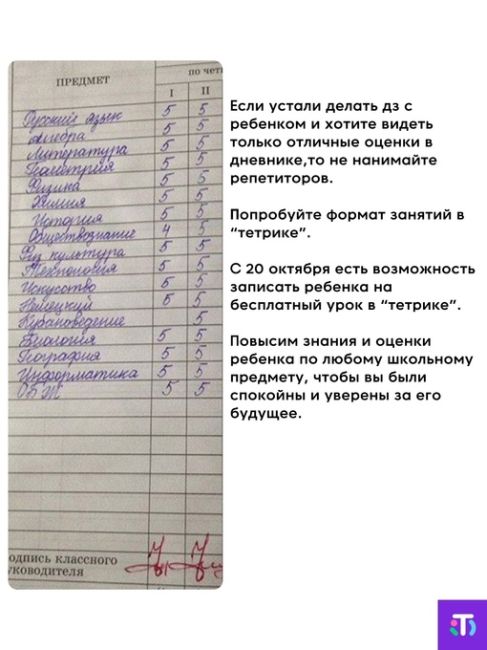 ПРЕДМЕТ
по чет
I II
Русский язык 5 5
алгебра 5 5
Литература 5 5
Геометрия 5 5
Физика 5 5
Химия 5 5
История 5 5
Обществознание 4 5
Физ культура 5 5
Технология 5 5
Искусство 5 5
Немецкий 5 5
Кубановедение 5
Биология 5 5
География 5 5
Информатика 5 5
ОБЖ 5 5
одпись классного
уководителя
Если устали делать дз с
ребенком и хотите видеть
только отличные оценки в
дневнике,то не нанимайте
репетиторов.
Попробуйте формат занятий в
“тетрике”.
С 20 октября есть возможность
записать ребенка на
бесплатный урок в “тетрике”.
Повысим знания и оценки
ребенка по любому школьному
предмету, чтобы вы были
спокойны и уверены за его
будущее.